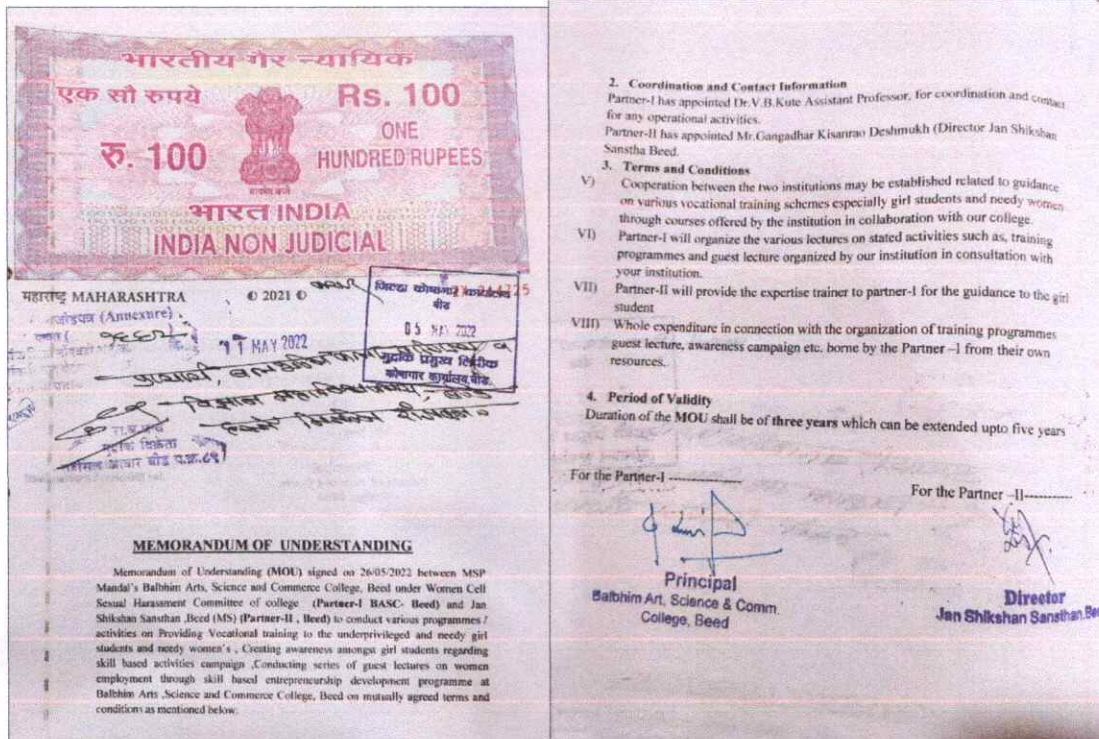 भारतीय गैर न्यायिक
एक सौ रुपये
Rs. 100
रु. 100
ONE
HUNDRED RUPEES
सत्यमेव जयते
भारत INDIA
INDIA NON JUDICIAL
महाराष्ट्र MAHARASHTRA
© 2021 ©
जोडपत्र (Annexure)
11 MAY 2022
जिल्हा कोषागार कार्यालय
बीड
05 MAY 2022
मुद्रांक प्रमुख लिपीक
कोषागार कार्यालय, बीड.
मुद्रांक विक्रेता
MEMORANDUM OF UNDERSTANDING
Memorandum of Understanding (MOU) signed on 26/05/2022 between MSP
Mandal's Balbhim Arts, Science and Commerce College, Beed under Women Cell
Sexual Harassment Committee of college (Partner-I BASC- Beed) and Jan
Shikshan Sansthan ,Beed (MS) (Partner-II , Beed) to conduct various programmes /
activities on Providing Vocational training to the underprivileged and needy girl
students and needy women's , Creating awareness amongst girl students regarding
skill based activities campaign ,Conducting series of guest lectures on women
employment through skill based entrepreneurship development programme at
Balbhim Arts ,Science and Commerce College, Beed on mutually agreed terms and
conditions as mentioned below:
2. Coordination and Contact Information
Partner-I has appointed Dr.V.B.Kute Assistant Professor, for coordination and contact
for any operational activities.
Partner-II has appointed Mr.Gangadhar Kisanrao Deshmukh (Director Jan Shikshan
Sanstha Beed.
3. Terms and Conditions
V) Cooperation between the two institutions may be established related to guidance
on various vocational training schemes especially girl students and needy women
through courses offered by the institution in collaboration with our college.
VI) Partner-I will organize the various lectures on stated activities such as, training
programmes and guest lecture organized by our institution in consultation with
your institution.
VII) Partner-II will provide the expertise trainer to partner-I for the guidance to the girl
student
VIII) Whole expenditure in connection with the organization of training programmes
guest lecture, awareness campaign etc. borne by the Partner –I from their own
resources.
4. Period of Validity
Duration of the MOU shall be of three years which can be extended upto five years
For the Partner-I -------------
For the Partner –II-----------
Principal
Balbhim Art, Science & Comm.
College, Beed
Director
Jan Shikshan Sansthan,Bee